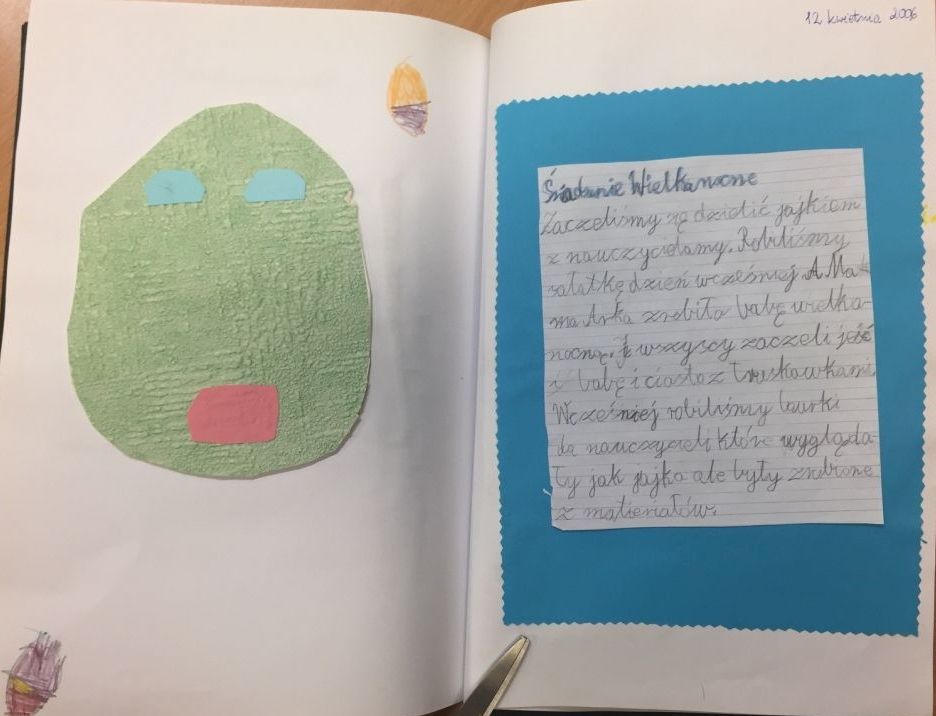 12 kwietnia 2006
Śniadanie Wielkanocne
Zaczeliśmy się dzielić jajkiem
z nauczycielamy. Robiliśmy
sałatkę dzień wcześniej A Ma-
ma Arka zrobiła babę wielka-
nocną. I wszyscy zaczeli jeść
i babę i ciasto z truskawkami
Wcześniej robiliśmy laurki
dla nauczycieli które wygląda-
ły jak jajka ale były zrobione
z materiałów.